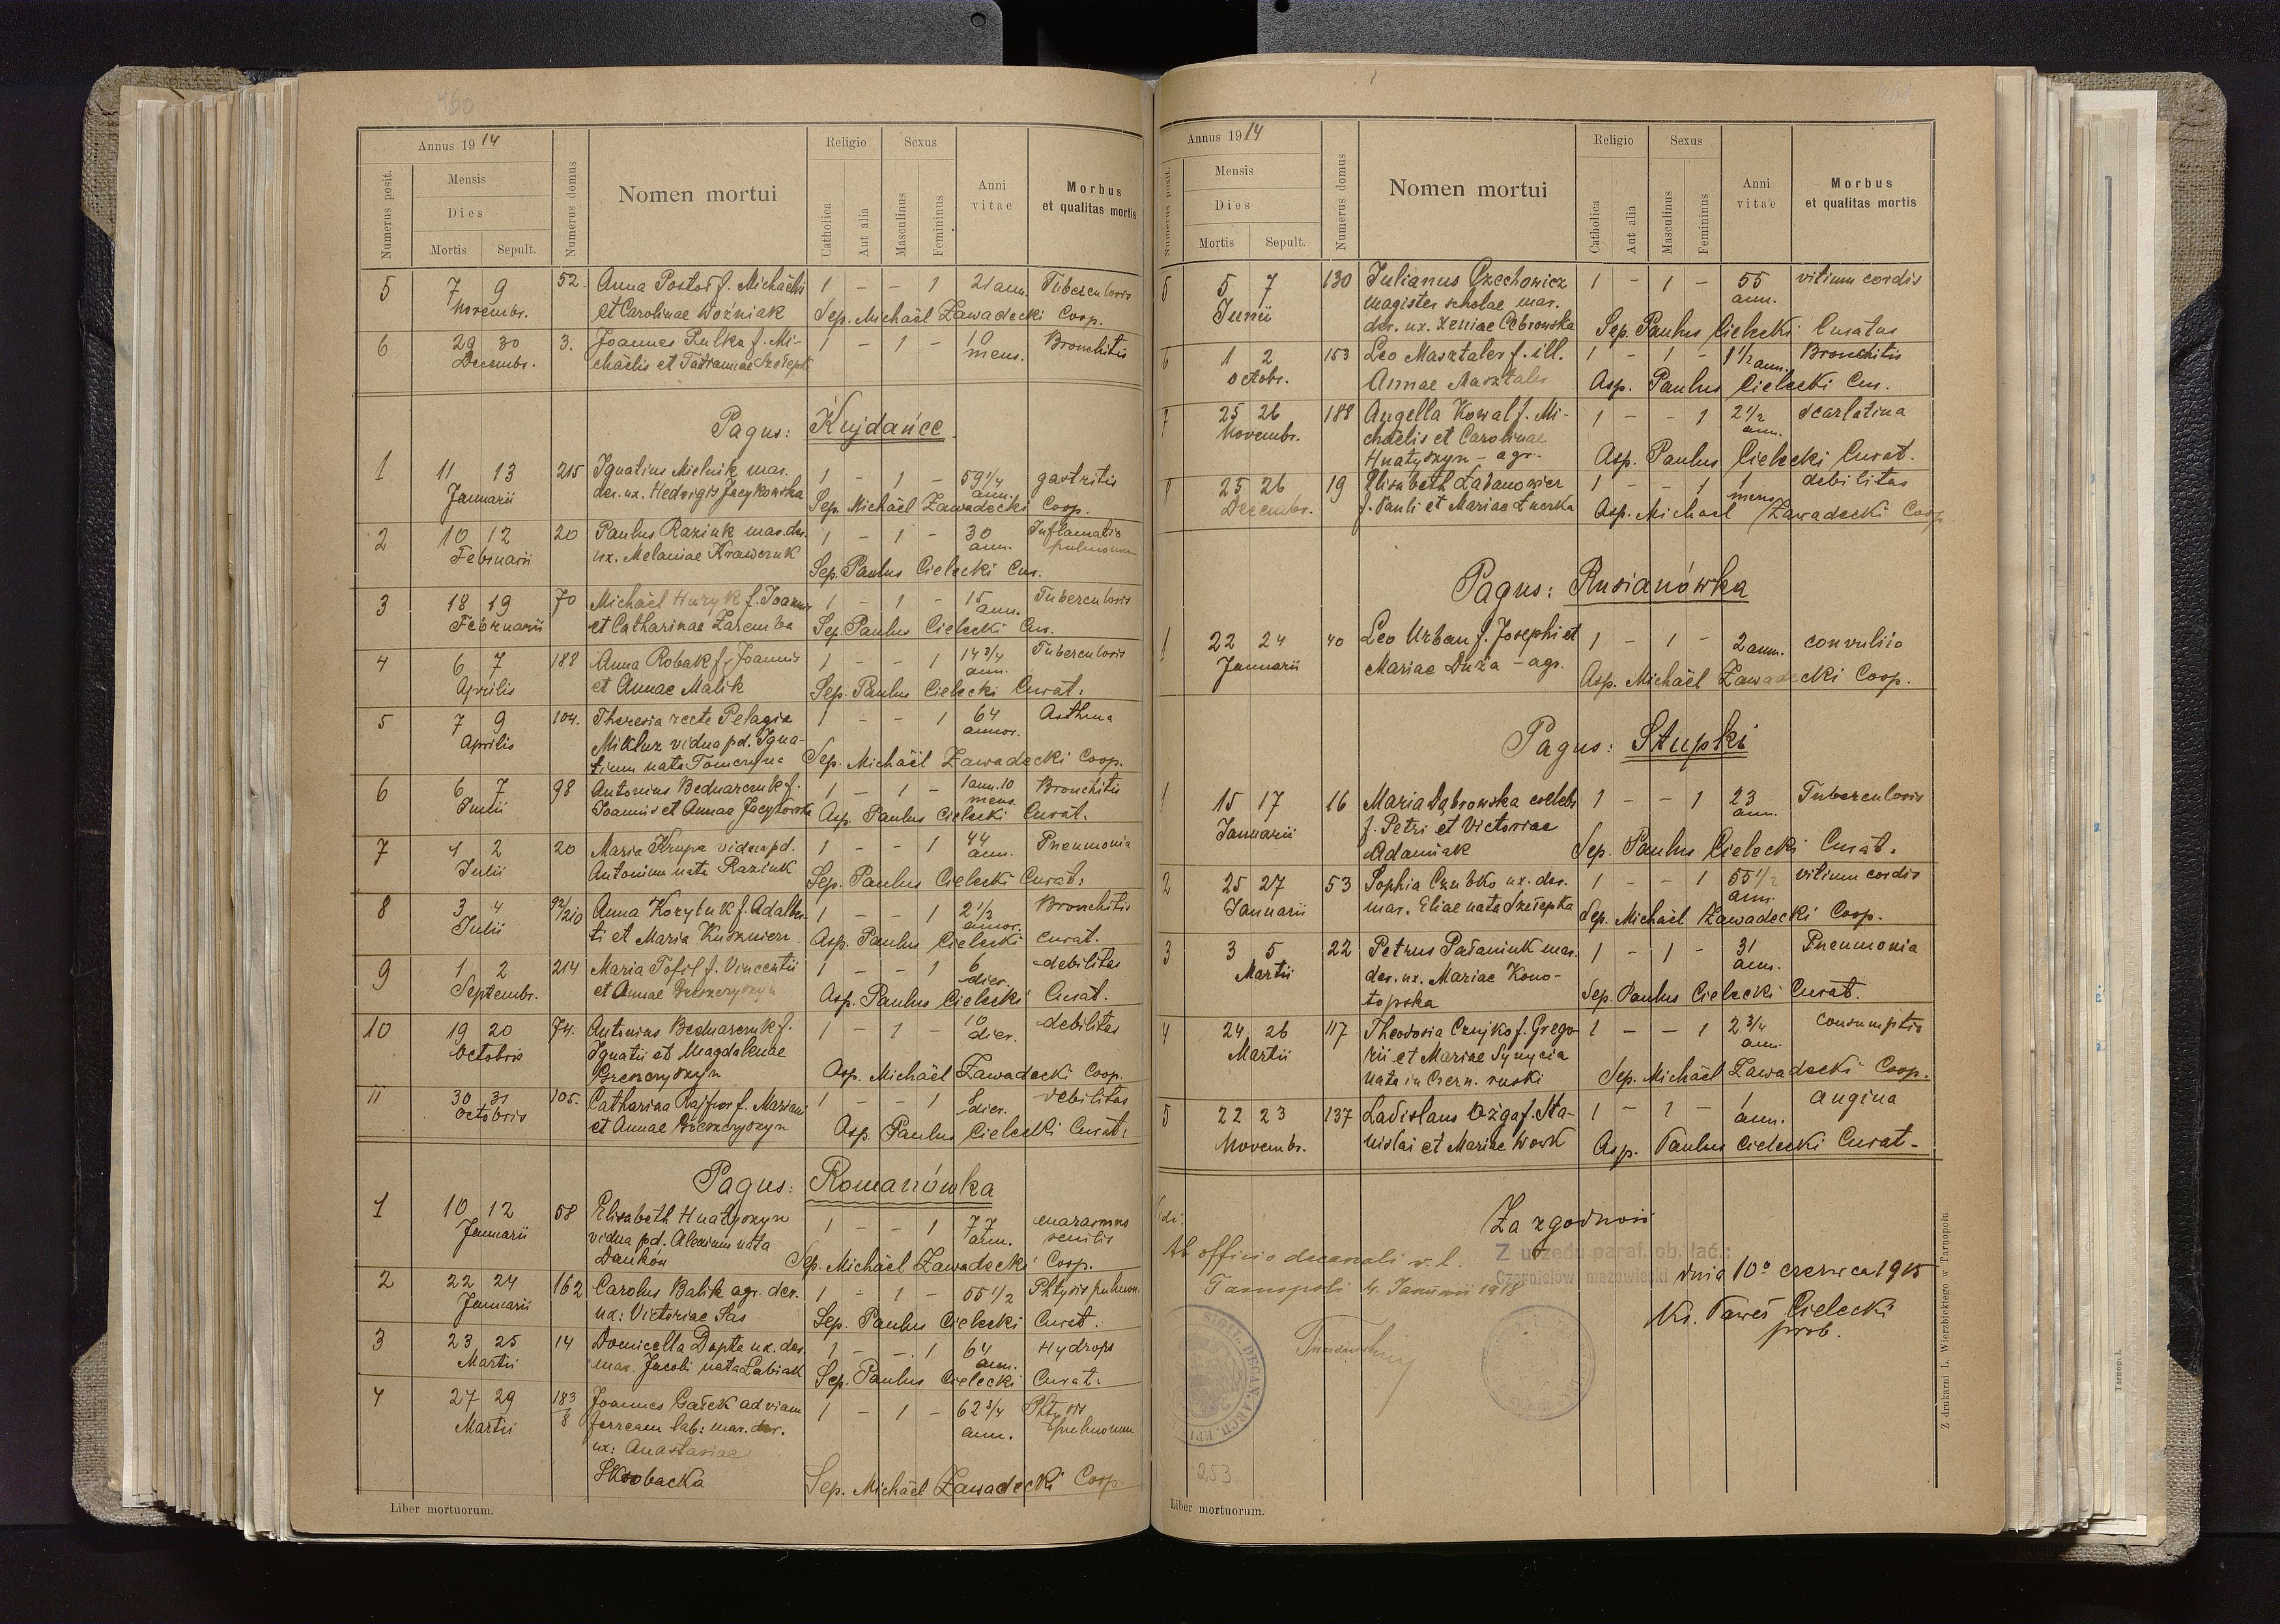 160
Annus 1914
Mensis
Dies
Mortis Sepult.
Numerus posit.
Numerus domus
Nomen mortui
Religio
Catholica
Aut alia
Sexus
Masculinus
Femininus
Anni vitae
Morbus et qualitas mortis
5 7 9 52. Anna Postoł f. Michaëlis 1 - - 1 21 ann. Tuberculosis
Novembr. et Carolinae Woźniak Sep. Michaël Zawadecki Coop.
6 29 30 3. Joannes Pulka f. Mi- 1 - 1 - 10 Bronchitis
Decembr. chaëlis et mens.
Pagus: Kujdańce
1 11 13 215 Ignatius Mielnik mar. 1 - 1 - 59 1/4 gastritis
Januarii der. ux. Hedvigis Jacykowska ann.
Sep. Michaël Zawadecki Coop.
2 10 12 20 Paulus Raziuk mar. der. 1 - 1 - 30 Inflamatio
Februarii ux. Melaniae Krawczuk ann. pulmonum
Sep. Paulus Cielecki Cur.
3 18 19 70 Michaël Huryk f. Joannis 1 - 1 - 15 Tuberculosis
Februarii et Catharinae Zaremba ann.
Sep. Paulus Cielecki Cur.
4 6 7 188 Anna Robak f. Joannis 1 - - 1 14 3/4 Tuberculosis
Aprilis et Annae Malik ann.
Sep. Paulus Cielecki Curat.
5 7 9 104. Theresia recte Pelagia 1 - - 1 64 Asthma
Aprilis Mikluz vidua p.d. Igna- annor.
tium nata Sep. Michaël Zawadecki Coop.
6 6 7 98 Antonius Bednarczuk f. 1 - 1 - 1 ann. 10 Bronchitis
Junii Joannis et Annae Jacykowska mens.
Asp. Paulus Cielecki Curat.
7 1 2 20 Maria Krupa vidua p.d. 1 - - 1 44 Pneumonia
Julii Antonium nata Raziuk ann.
Sep. Paulus Cielecki Curat.
8 3 4 92/210 Anna Kozyluk f. Adalber- 1 - - 1 2 1/2 Bronchitis
Julii ti et Maria Kusznierz annor.
Asp. Paulus Cielecki Curat.
9 1 2 214 Maria Tofil f. Vincentii 1 - - 1 6 debilitas
Septembr. et Annae Grzeszczyszyn dier.
Asp. Paulus Cielecki Curat.
10 19 20 74. Antonius Bednarczuk f. 1 - 1 - 10 debilitas
Octobris Ignatii et Magdalenae dier.
Grzeszczyszyn Asp. Michaël Zawadecki Coop.
11 30 31 105. Catharina Rajzer f. Mariani 1 - - 1 debilitas
Octobris et Annae Grzeszczyszyn dier.
Asp. Paulus Cielecki Curat.
Pagus: Romanówka
1 10 12 58 Elisabeth Hnatyszyn 1 - - 1 77 marasmus
Januarii vidua p.d. Alexium nata ann. senilis
Dańków Sep. Michaël Zawadecki Coop.
2 22 24 162 Carolus Balik agr. der. 1 - 1 - 55 1/2 Phtysis pulmon.
Januarii ux: Victoriae Sas Sep. Paulus Cielecki Curat.
3 23 25 14 Domicella Dopta ux. der. 1 - - 1 64 Hydrops
Martii mar. Jacobi nata Labiak ann.
Sep. Paulus Cielecki Curat.
4 27 29 183/8 Joannes Gałek ad viam 1 - 1 - 62 3/4 Phtysis
Martii ferream lab: mar. der. ann. pulmonum
ux: Anastasiae
Skrobacka Sep. Michaël Zawadecki Coop
Liber mortuorum.
Annus 1914
Mensis
Dies
Mortis Sepult.
Numerus posit.
Numerus domus
Nomen mortui
Religio
Catholica
Aut alia
Sexus
Masculinus
Femininus
Anni vitae
Morbus et qualitas mortis
5 5 7 130 Julianus Orzechowicz 1 - 1 - 55 vitium cordis
Junii magister scholae mar. ann.
der. ux. Xeniae Cebrowska Sep. Paulus Cielecki Curatus
6 1 2 153 Leo Masztaler f. ill. 1 - 1 - 1 1/2 ann. Bronchitis
Octobr. Annae Masztaler Asp. Paulus Cielecki Cur.
7 25 26 188 Angella Kowal f. Mi- 1 - - 1 2 1/2 scarlatina
Novembr. chaëlis et Carolinae ann.
Hnatyszyn - agr. Asp. Paulus Cielecki Curat.
25 26 19 Elisabeth Łabanowicz 1 - - 1 1 debilitas
Decembr. f. Pauli et Mariae mens.
Asp. Michaël Zawadecki Coop
Pagus: Rusianówka
1 22 24 40 Leo Urban f. Josephi et 1 - 1 - 2 ann. convulsio
Januarii Mariae Duża - agr.
Asp. Michaël Zawadecki Coop.
Pagus: Stupki
1 15 17 16 Maria Dąbrowska coelebs 1 - - 1 23 Tuberculosis
Januarii f. Petri et Victoriae ann.
Adamiak Sep. Paulus Cielecki Curat.
2 25 27 53 Sophia Czubko ux. der. 1 - - 1 55 1/2 vitium cordis
Januarii mar. Eliae nata Szełepka ann.
Sep. Michaël Zawadecki Coop.
3 3 5 22 Petrus Pałaniuk mar. 1 - 1 - 31 Pneumonia
Martii der. ux. Mariae Kono- ann.
topska Sep. Paulus Cielecki Curat.
4 24 26 117 Theodosia Czujko f. Grego- 1 - - 1 2 3/4 consumptio
Martii rii et Mariae Synycia ann.
nata in Czern. ruski Sep. Michaël Zawadecki Coop.
5 22 23 137 Ladislaus Ożga f. Sta- 1 - 1 - 1 angina
Novembr. nislai et Mariae Wowk ann.
Asp. Paulus Cielecki Curat-
Za zgodność
Vidi:
Ab officio decanali r. l.
Tarnopoli 4. Januarii 1918
Z urzędu paraf. ob. łać.:
Czernielów mazowiecki dnia 10º czerwca 1915
Ks. Paweł Cielecki
prob.
253
Liber mortuorum.
Z drukarni L. Wierzbickiego w Tarnopolu
Tarnopol.